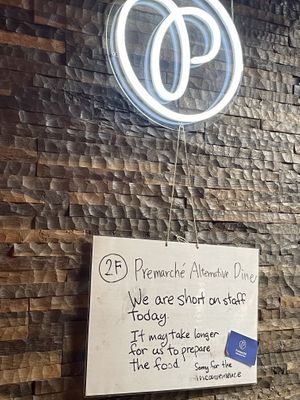 2F Premarché Alternative Diner
We are short on staff
today.
It may take longer
for us to prepare
the food. Sorry for the
inconvenience